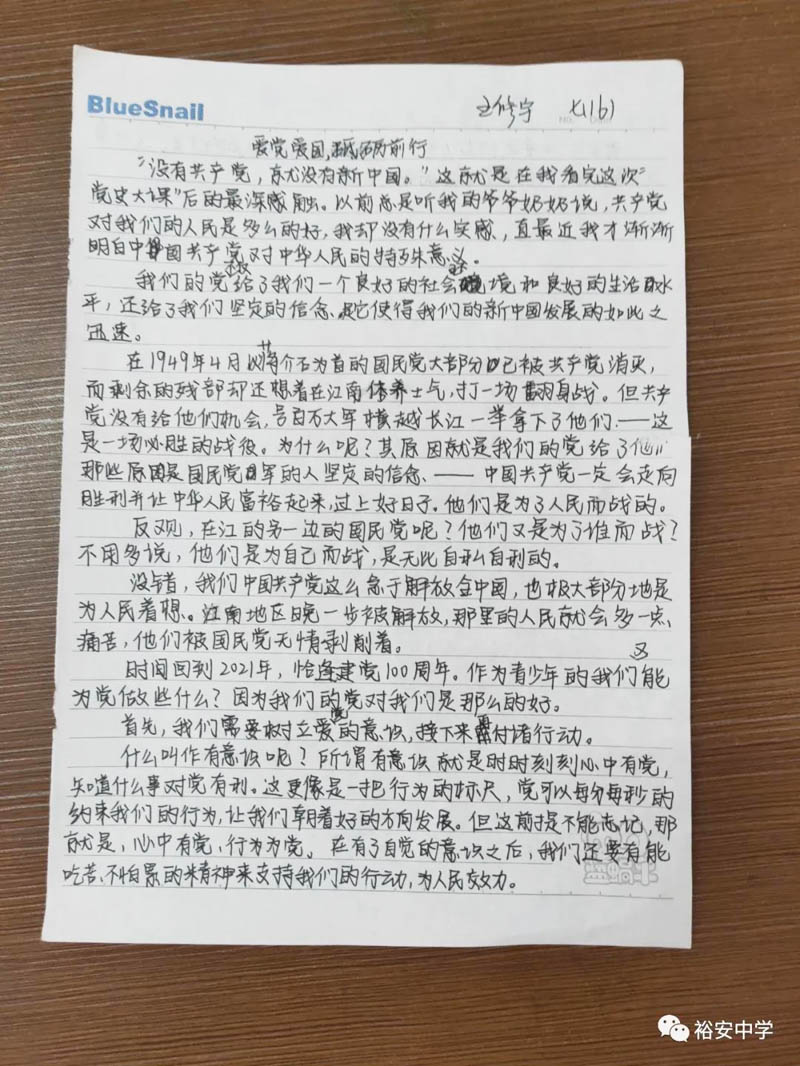 BlueSnail
王修宇 七(16)
爱党爱国,砥砺前行
"没有共产党,就没有新中国。"这就是在我看完这次"
党史大课"后的最深感触。以前总是听我的爷爷奶奶说,共产党
对我们的人民是多么的好,我却没有什么实感、直最近我才渐渐
明白中国共产党对中华人民的特殊意义。
我们的党给了我们一个良好的社会环境和良好的生活水
平,还给了我们坚定的信念、它使得我们的新中国发展的如此之
迅速。
在1949年4月以蒋介石为首的国民党大部分已被共产党消灭,
而剩余的残部却还想着在江南休养士气,打一场翻身战。但共产
党没有给他们机会,百万大军横越长江一举拿下了他们.——这
是一场必胜的战役。为什么呢?其原因就是我们的党给了他们
那些原是国民党军的人坚定的信念、——中国共产党一定会走向
胜利并让中华人民富裕起来,过上好日子。他们是为了人民而战的。
反观,在江的另一边的国民党呢?他们又是为了谁而战?
不用多说,他们是为自己而战,是无比自私自利的。
没错,我们中国共产党这么急于解放全中国,也极大部分地是
为人民着想。江南地区晚一步被解放,那里的人民就会多一点
痛苦,他们被国民党无情剥削着。
时间回到2021年,恰逢建党100周年。作为青少年的我们又能
为党做些什么?因为我们的党对我们是那么的好。
首先,我们需要树立爱党的意识,接下来再付诸行动。
什么叫作有意识呢?所谓有意识就是时时刻刻心中有党,
知道什么事对党有利。这更像是一把行为的标尺,党可以每分每秒的
约束我们的行为,让我们朝着好的方向发展。但这前提是不能忘记,那
就是,心中有党,行为为党。在有了自觉的意识之后,我们还要有能
吃苦、不怕累的精神来支持我们的行动,为人民效力。
裕安中学